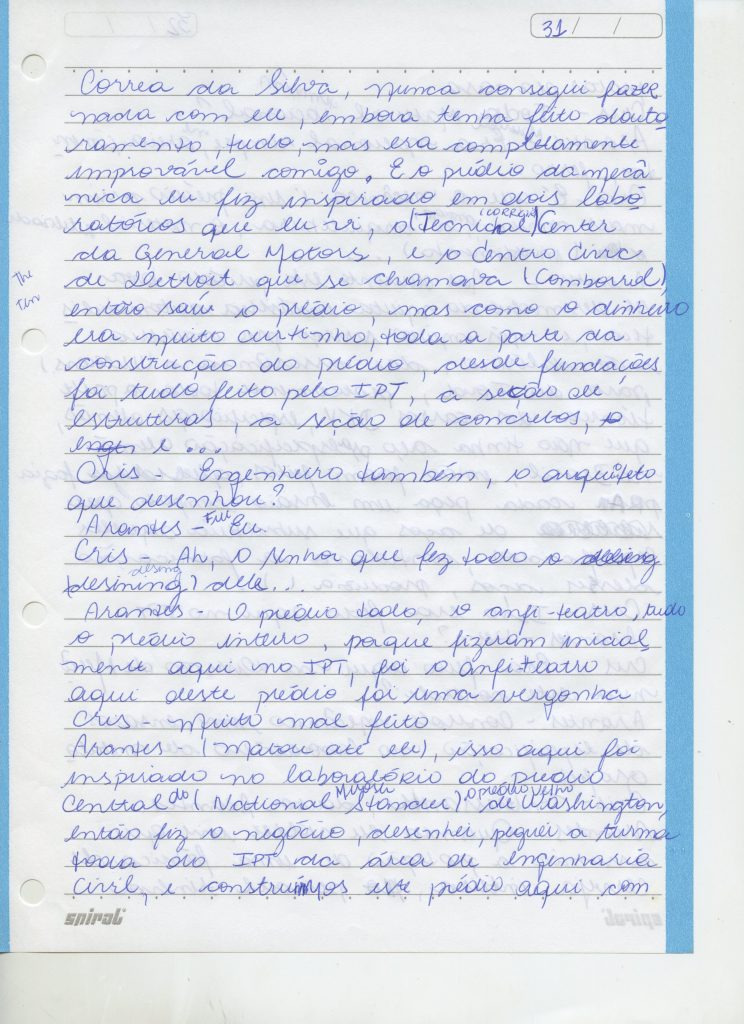 31/ /
Correa da Silva, nunca consegui fazer
nada com ele, embora tenha feito douto
ramento, tudo, mas era completamente
improvável comigo. E o prédio da mecâ
nica eu fiz inspirado em dois labo
ratórios que eu vi, o (Tecnical) (corrigir) Center
da General Motors, e o Centro Civic
de Detroit que se chamava (Comborred)
The
então saiu o prédio, mas como o dinheiro
era muito curtinho, toda a parte da
construção do prédio, desde fundações
foi tudo feito pelo IPT, a seção de
estruturas, a seção de concretos, o
enge e ...
Cris - Engenheiro também, o arquiteto
que desenhou?
Arantes - Fui Eu.
Cris - Ah, o senhor que fez todo o desing
desing
desining) dele...
Arantes - O prédio todo, o anfi-teatro, tudo
o prédio inteiro, porque fizeram inicial
mente aqui no IPT, foi o anfi-teatro
aqui deste prédio foi uma vergonha
Cris - Muito mal feito.
Arantes - (matou até ele), isso aqui foi
inspirado no laboratório do predio
Central do (National Stander) o prédio velho de Washington,
então fiz o negócio, desenhei, peguei a turma
toda do IPT da área de engenharia
Civil, e construímos este prédio aqui com
spiral